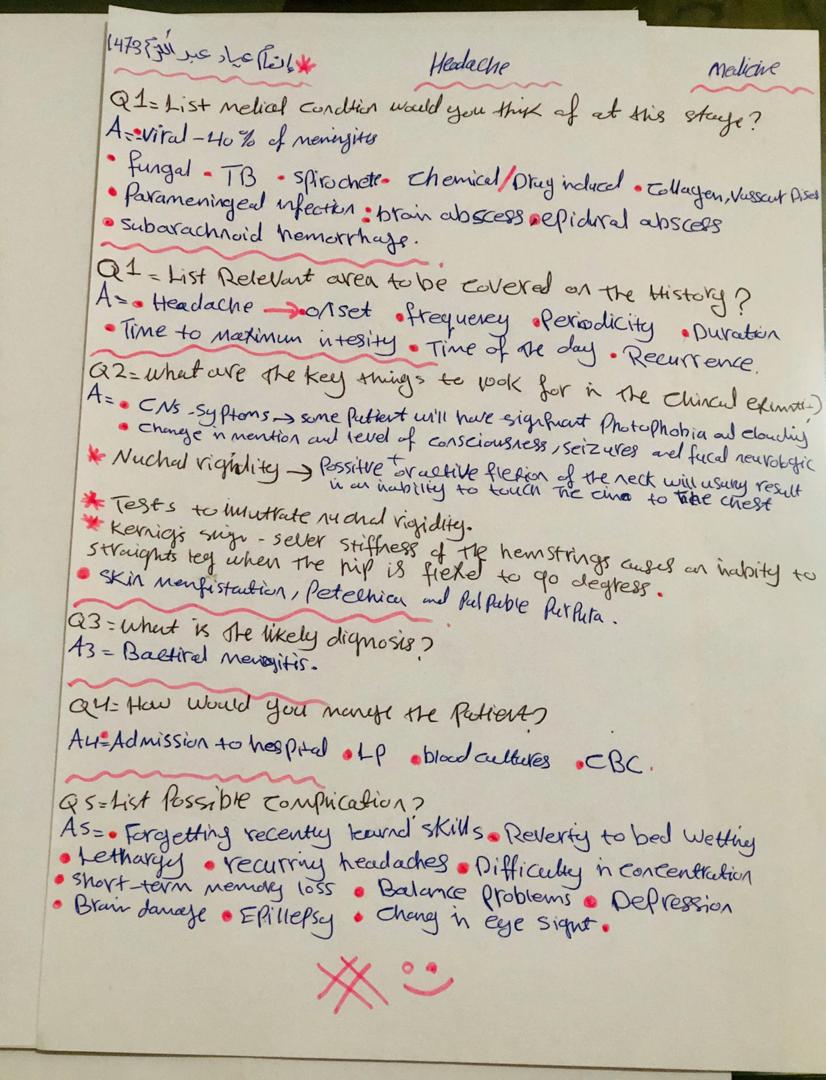 إنعام عياد عبد 1473 Headache Medicine
Q1= List Medical Condtion would you think of at this stage?
A=•viral -40% of meningites
• fungal • TB • spirochete • Chemical/Drug induced • Collagen, Vasscut Dises
• Parameningeal infection : brain abscess • epidural abscess
• subarachnoid hemorrhage.
Q1 = List Relevant area to be covered on the History?
A= • Headache → onset • frequerey • Periodicity • Duration
• Time to Maximun intesity • Time of the day • Recurrence.
Q2= what are the key things to look for in the Clinical
A= • CNS -Syptoms → some Patient will have signficant Photophobia and clouding
• Change in mention and level of consciousness, seizures and focal neurologic
* Nuchal rigidity → Possitve or active flexion of the neck will usualy result
in an inability to touch the to the chest
* Tests to nuchal rigidity.
* Kernigs sign - sever stiffness of the hemstrings causes an inabity to
straights leg when the hip is flexed to 90 degress.
• Skin menfistaution, Petechica and Palpable PurPura.
Q3= What is the likely dignosis?
A3 = Bactiral Menigitis.
Q4= How would you manege the Patient?
A4= Admission to hospital • LP • blood cultures • CBC.
Q5= List Possible Complication?
A5= • Forgetting recently learnd skills • Reverty to bed Wetting
• Lethargy • recurring headaches • Difficulty in concentration
• short-term memory loss • Balance Problems • Depression
• Brain damage • Epillepsy • Chang in eye signt.